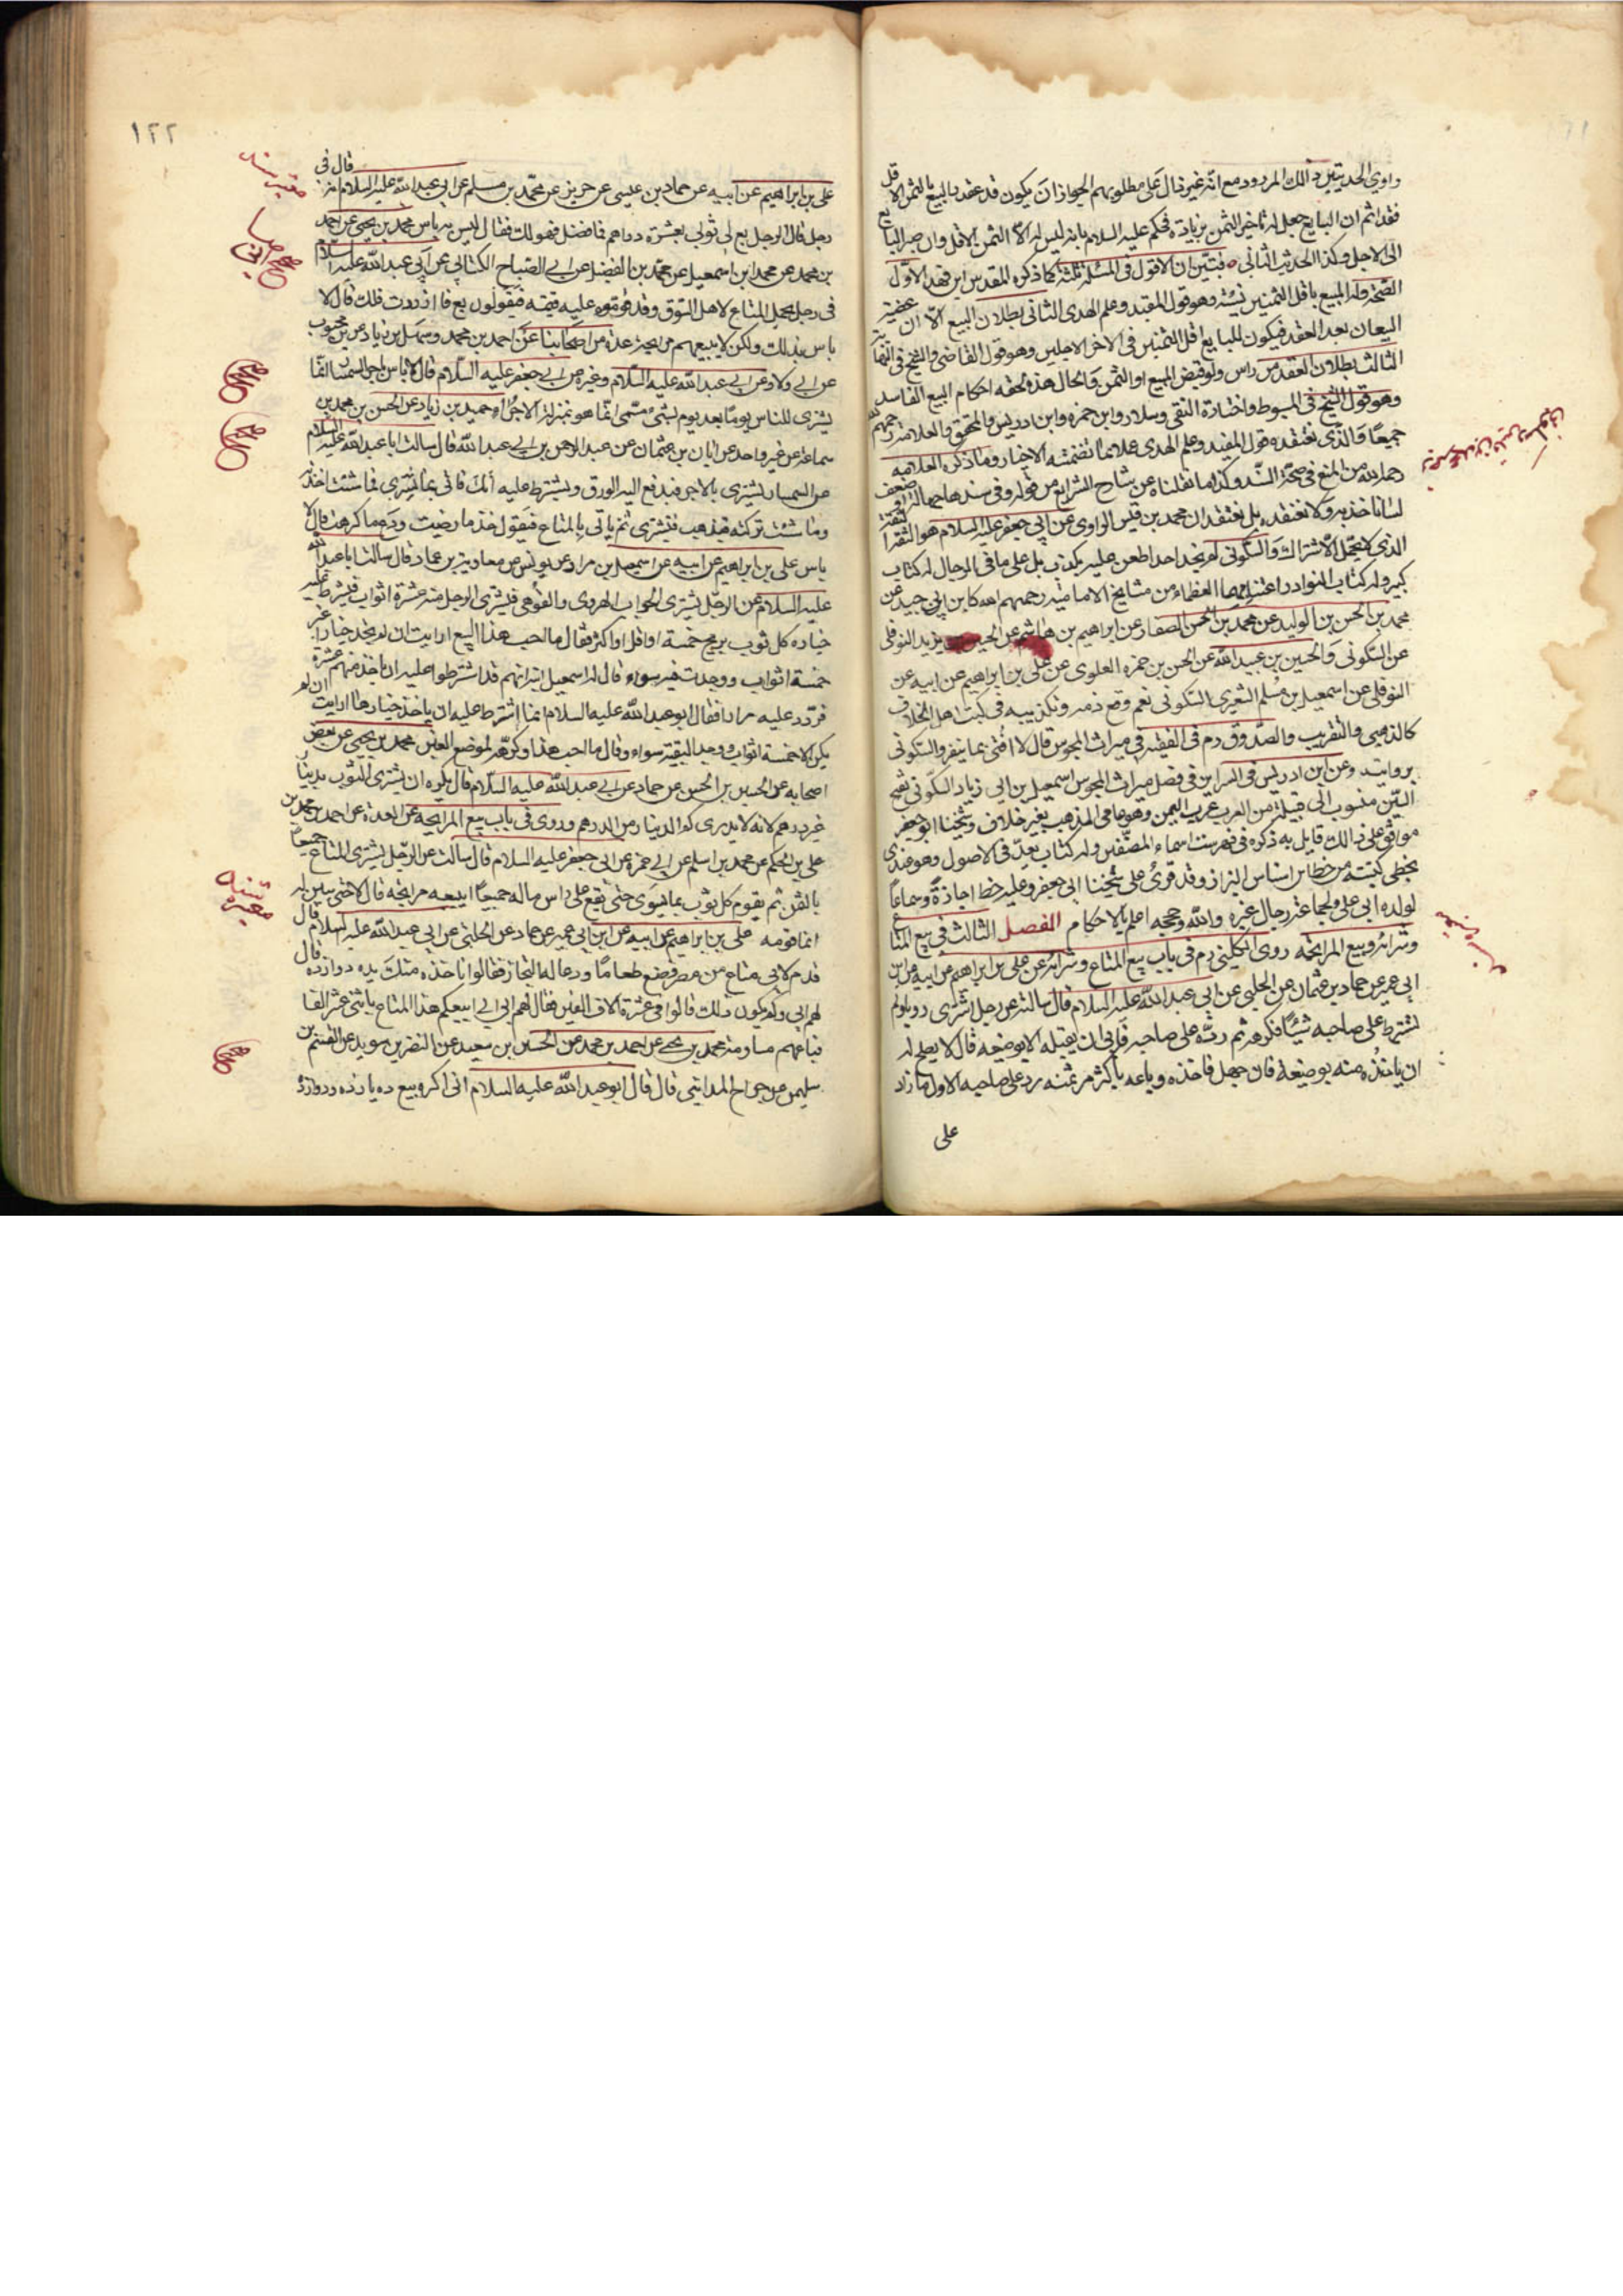 راوي الحديثين ذلك المردود مع انه غير دال على مطلوبهم الجواز ان يكون قد عقد البيع بالثمن الاقل
فقدا ثم ان البايع جعل له تاخير الثمن بزيادة فحكم عليه السلام بانه ليس له الا الثمن الاقل وان صبر البايع
الى الاجل وكذا الحديث الثاني فتبين ان الاقوال في المسئلة ثلثة كما ذكره المقدس ابن فهد الاول
الصحة وله المبيع باقل الثمنين نسيئة وهو قول المفيد وعلم الهدى الثاني بطلان البيع الا ان
البيعان بعد العقد فيكون للبايع اقل الثمنين في الاخر الاجلين وهو قول القاضي والشيخ في النهاية
الثالث بطلان العقد من راس ولو قبض المبيع او الثمن والحال هذه لحقه احكام البيع الفاسد
وهو قول الشيخ في المبسوط واختاره التقى وسلار وابن حمزه وابن ادريس والمحقق والعلامة رحمهم الله
جميعا والذي نعتقده قول المفيد وعلم الهدى عملا بما تضمنته الاخبار وما ذكره العلامه
رحمه الله من المنع في صحة السند وكذا ما نقلناه عن شارح الشرايع من قوله وفي سندها جهالة او ضعف
لسنا ناخذ به ولا نعتقده بل نعتقد ان محمد بن قيس الراوي عن ابي جعفر عليه السلام هو الثقة
الذي لا يحتمل الاشتراك والسكوني لم نجد احدا طعن عليه بكذب بل على ما في الرجال له كتاب
كبير وله كتاب النوادر اعتنى بهما العظماء من مشايخ الاماميه رحمهم الله كابن ابي جيد عن
محمد بن الحسن بن الوليد عن محمد بن الحسن الصفار عن ابراهيم بن هاشم عن الحسين بن يزيد النوفلي
عن السكوني والحسين بن عبيد الله عن الحسن بن حمزه العلوي عن علي بن ابراهيم عن ابيه عن
النوفلي عن اسمعيل بن مسلم الشعيري السكوني نعم وقع ذمه وتكذيبه في كتب اهل الخلاف
كالذهبي والتقريب والصدوق ره في الفقيه في ميراث المجوس قال لا افتي بما ينفرد السكوني
بروايته وعن ابن ادريس في السراير في فصل ميراث المجوس اسمعيل بن ابي زياد السكوني بفتح
السين منسوب الى قبيلة من العرب عرب اليمن وهو عامي المذهب بغير خلاف وشيخنا ابو جعفر
موافق على ذلك قايل به ذكره في فهرست اسماء المصنفين وله كتاب يعد في الاصول وهو عندي
بخطي كتبته من خط ابن اشناس البزاز وقد قرئ على شيخنا ابي جعفر وعليه خطه اجازة وسماعا
لولده ابي علي ولجماعة رجال غيره والله وحججه اعلم بالاحكام الفصل الثالث في بيع المتاع
وشرائه وبيع المرابحه روى الكليني ره في باب بيع المتاع وشرائه عن علي بن ابراهيم عن ابيه عن ابن
ابي عمير عن حماد بن عثمان عن الحلبي عن ابي عبد الله عليه السلام قال سالته عن رجل اشترى ثوبا ولم
يشترط على صاحبه شيئا فكرهه ثم رده على صاحبه فابى ان يقيله الا بوضيعه قال لا يصلح له
ان ياخذه منه بوضيعة فان جهل فاخذه وباعه باكثر من ثمنه رد على صاحبه الاول ما زاد
على
١٢٢
علي بن ابراهيم عن ابيه عن حماد بن عيسى عن حريز عن محمد بن مسلم عن ابي عبد الله عليه السلام انه قال في
رجل قال لرجل بع لي ثوبي بعشرة دراهم فما فضل فهو لك فقال ليس به باس محمد بن يحيى عن احمد
بن محمد عن محمد بن اسمعيل عن محمد بن الفضيل عن ابي الصباح الكناني عن ابي عبد الله عليه السلام
في رجل يحمل المتاع لاهل السوق وقد قوموه عليه قيمة فيقولون بع فما ازددت فلك قال لا
باس بذلك ولكن لا يبيعهم مرابحة عدة من اصحابنا عن احمد بن محمد وسهل بن زياد عن ابن محبوب
عن ابي ولاد عن ابي عبد الله عليه السلام وغيره عن ابي جعفر عليه السلام قال لا باس باجر السمسار انما
يشتري للناس يوما بعد يوم بشئ مسمى انما هو بمنزلة الاجراء حميد بن زياد عن الحسن بن محمد بن
سماعة عن غير واحد عن ابان بن عثمان عن عبد الرحمن بن ابي عبد الله قال سالت ابا عبد الله عليه السلام
عن السمسار يشتري بالاجر فيدفع اليه الورق ويشترط عليه انك تاتي بما تشتري فما شئت اخذته
وما شئت تركته فيذهب فيشتري ثم ياتي بالمتاع فيقول خذ ما رضيت ودع ما كرهت قال لا
باس علي بن ابراهيم عن ابيه عن اسمعيل بن مرار عن يونس عن معاوية بن عمار قال سالت ابا عبد الله
عليه السلام عن الرجل يشتري الجراب الهروي والقوهي فيشتري الرجل منه عشرة اثواب فيشترط عليه
خياره كل ثوب بربح خمسة او اقل او اكثر فقال ما احب هذا البيع ارايت ان لم يجد خيارا غير
خمسة اثواب ووجد بقيته سواء قال له اسمعيل ابنه انهم قد اشترطوا عليه ان ياخذ منهم عشرة
فردد عليه مرارا فقال ابو عبد الله عليه السلام انما اشترط عليه ان ياخذ خيارها ارايت ان لم
يكن الا خمسة اثواب ووجد البقية سواء وقال ما احب هذا وكرهه لموضع الغبن محمد بن يحيى عن بعض
اصحابه عن الحسين بن الحسن عن حماد عن ابي عبد الله عليه السلام قال يكره ان يشترى الثوب بدينار
غير درهم لانه لا يدرى كم الدينار من الدرهم وروى في باب بيع المرابحه عن العدة عن احمد بن محمد بن
علي بن الحكم عن محمد بن اسلم عن ابي حمزه عن ابي جعفر عليه السلام قال سالت عن الرجل يشتري المتاع جميعا
بالثمن ثم يقوم كل ثوب بما يسوى حتى يقع على راس ماله جميعا ايبيعه مرابحه قال لا حتى يبين له
انما قومه علي بن ابراهيم عن ابيه عن ابن ابي عمير عن حماد عن الحلبي عن ابي عبد الله عليه السلام قال
قدم لابي متاع من مصر فصنع طعاما ودعا له التجار فقالوا ناخذه منك بده دوازده قال
لهم ابي وكم يكون ذلك قالوا في عشرة الاف الفين فقال لهم ابي اني ابيعكم هذا المتاع باثني عشر الفا
فباعهم مساومة محمد بن يحيى عن احمد بن محمد عن الحسين بن سعيد عن النضر بن سويد عن القسم بن
سليمن عن جراح المدايني قال قال ابو عبد الله عليه السلام اني اكره بيع ده يازده ودوازده